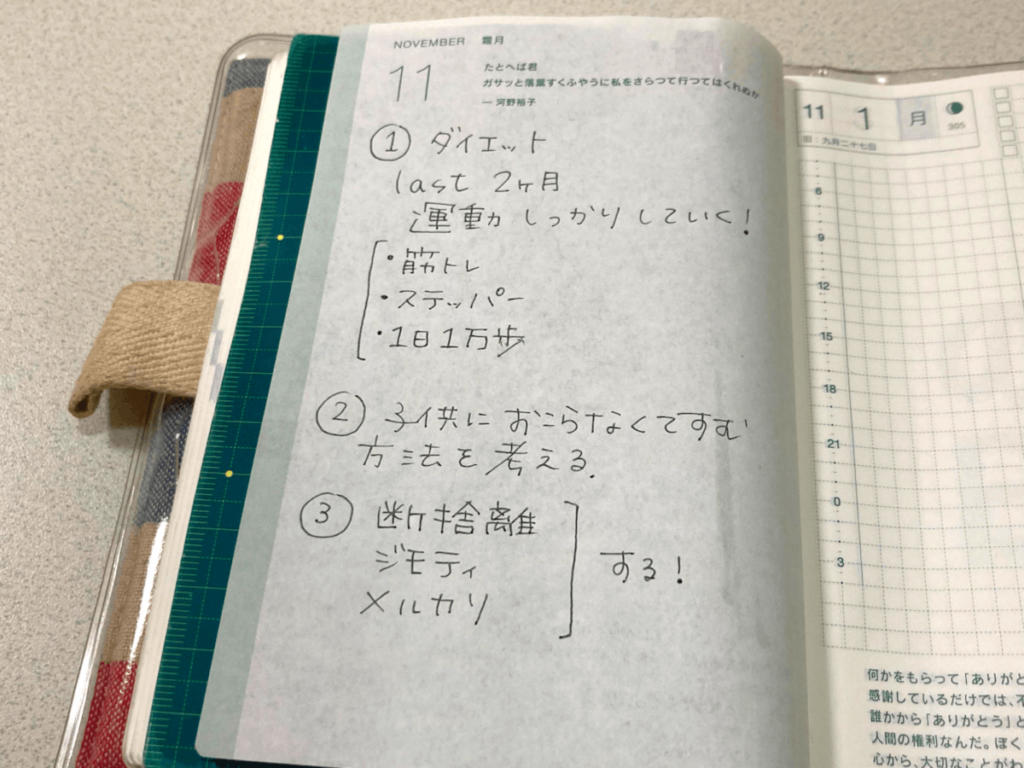 NOVEMBER 霜月
11
たとへば君
ガサッと落葉すくふやうに私をさらつて行つてはくれぬか
― 河野裕子
① ダイエット
last 2ヶ月
運動しっかりしていく!
・筋トレ
・ステッパー
・1日1万歩
② 子供におこらなくてすむ
方法を考える.
③ 断捨離
ジモティ
メルカリ
する!
11 1 月
305
旧:九月二十七日
6
9
12
15
18
21
0
3
何かをもらって「ありがと
感謝しているだけでは、不
誰かから「ありがとう」と
人間の権利なんだ。ぼく
心から、大切なことがわ